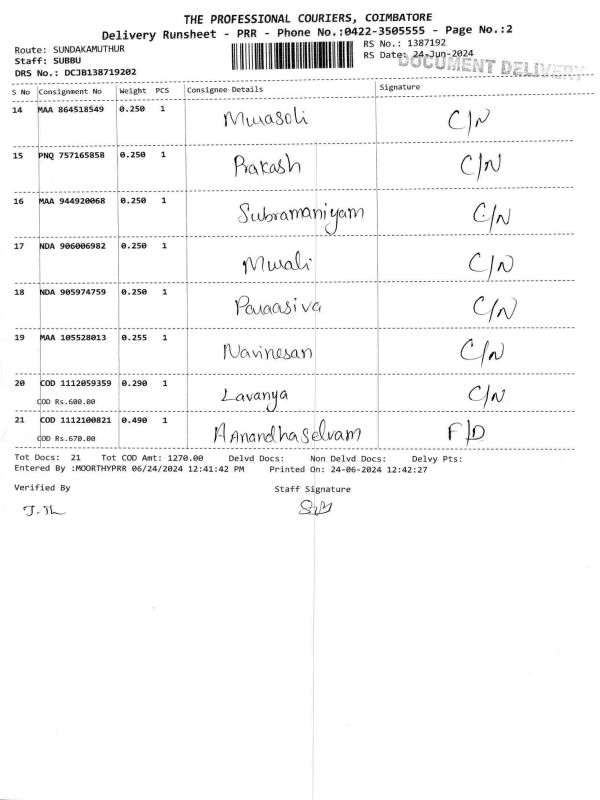 THE PROFESSIONAL COURIERS, COIMBATORE
Delivery Runsheet - PRR - Phone No.:0422-3505555 - Page No.:2
Route: SUNDAKAMUTHUR RS No.: 1387192
Staff: SUBBU RS Date: 24-Jun-2024
DOCUMENT DELIVERY
DRS No.: DCJB138719202
S No Consignment No Weight PCS Consignee Details Signature
14 MAA 864518549 0.250 1 C/N
15 PNQ 757165858 0.250 1 Prakash C/N
16 MAA 944920068 0.250 1 Subramaniyam C/N
17 NDA 906006982 0.250 1 C/N
18 NDA 905974759 0.250 1 C/N
19 MAA 105528013 0.255 1 Navinesan C/N
20 COD 1112059359 0.290 1 Lavanya C/N
COD Rs.600.00
21 COD 1112100821 0.490 1 Anandhaselvam F/D
COD Rs.670.00
Tot Docs: 21 Tot COD Amt: 1270.00 Delvd Docs: Non Delvd Docs: Delvy Pts:
Entered By :MOORTHYPRR 06/24/2024 12:41:42 PM Printed On: 24-06-2024 12:42:27
Verified By Staff Signature